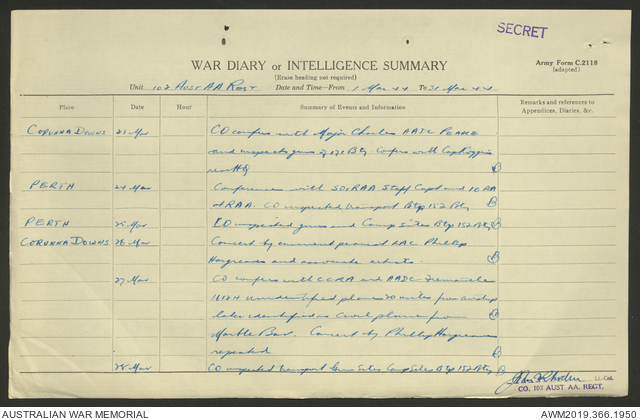 SECRET
WAR DIARY or INTELLIGENCE SUMMARY
(Erase heading not required)
Army Form C.2118
(adapted)
Unit 102 AUST AA REGT Date and Time—From 1 Mar 44 To 31 Mar 44
Place Date Hour Summary of Events and Information Remarks and references to
Appendices, Diaries, &c.
CORUNNA DOWNS 23 Mar CO confers with Major Charles AADC PEARCE
and inspects guns of Bty. Confers with Capt
PERTH 24 Mar Conferences with SO1 RAA Staff Capt and IO RA
at RAA. CO inspected transport Btg 152 Bty.
PERTH 25 Mar CO inspected guns and Camp Sites Btg 152 Bty
CORUNNA DOWNS 26 Mar Concert by LAC Phillip
Hargreaves and associate artists.
27 Mar CO confers with CCRA and AADC Fremantle
1612H Unidentified plane 20 miles from airstrip
later identified as Civil plane from
Marble Bar. Concert by Phillip Hargreaves
repeated
28 Mar CO inspected transport Gun Sites Camp Sites Btg 152 Bty
Lt. Col.
CO. 102 AUST AA. REGT.
AUSTRALIAN WAR MEMORIAL AWM2019.366.1950